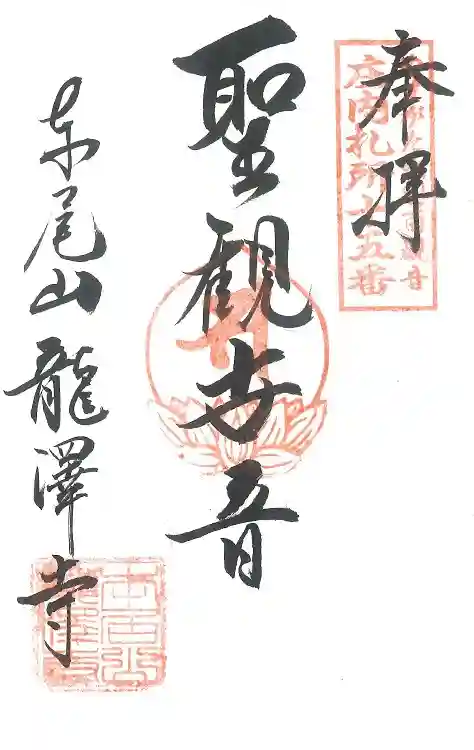 奉拝
庄内札所十五番
聖観世音
東尾山龍澤寺